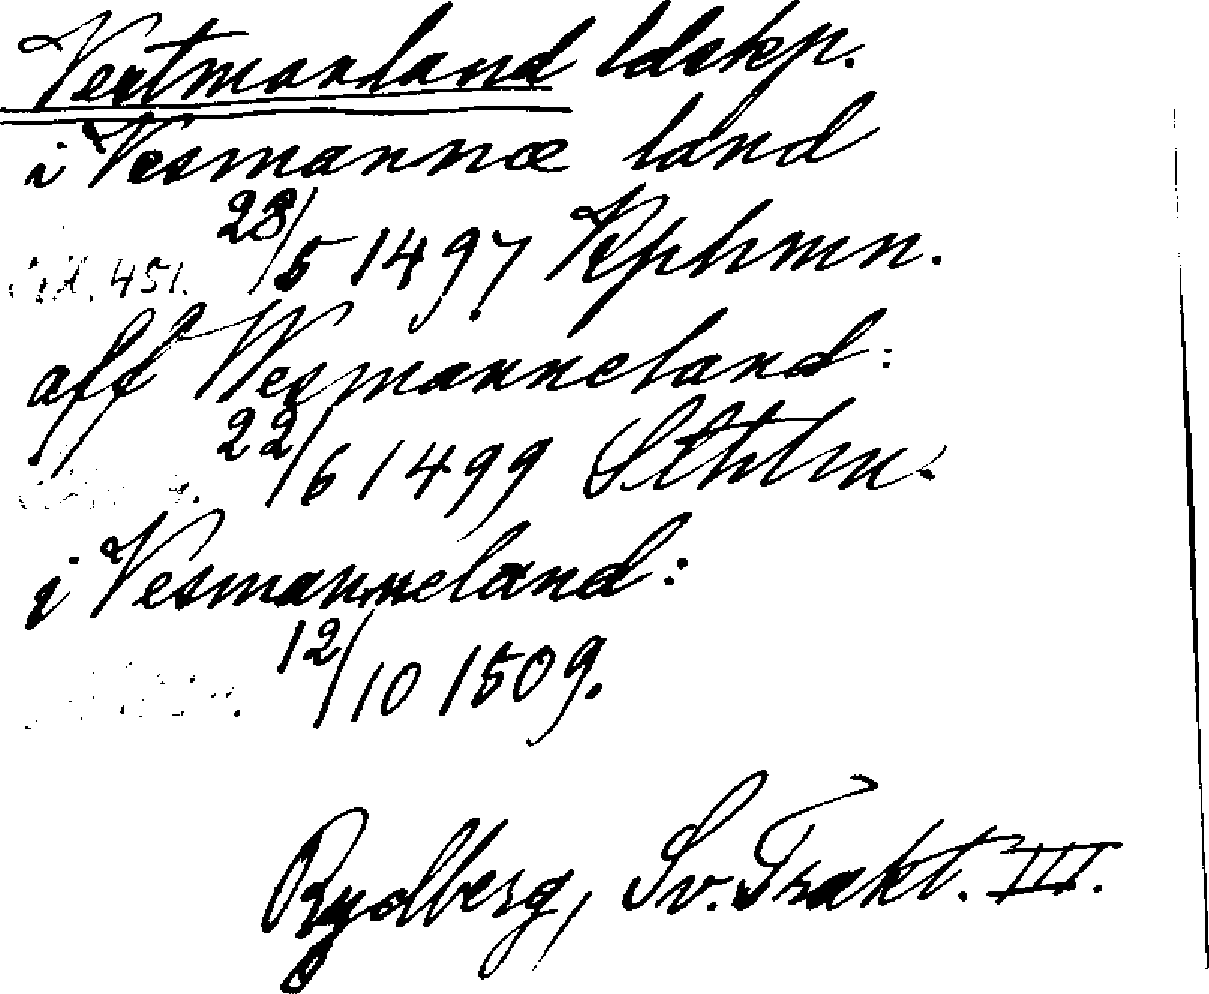 Vestmanland ldskp.
i Vesmannæ land
28/5 1497 Kphmn.
451.
aff Wesmanneland:
22/6 1499 Sthlm.
i Vesmanneland:
12/10 1509.
Rydberg, Sv. Trakt. III.